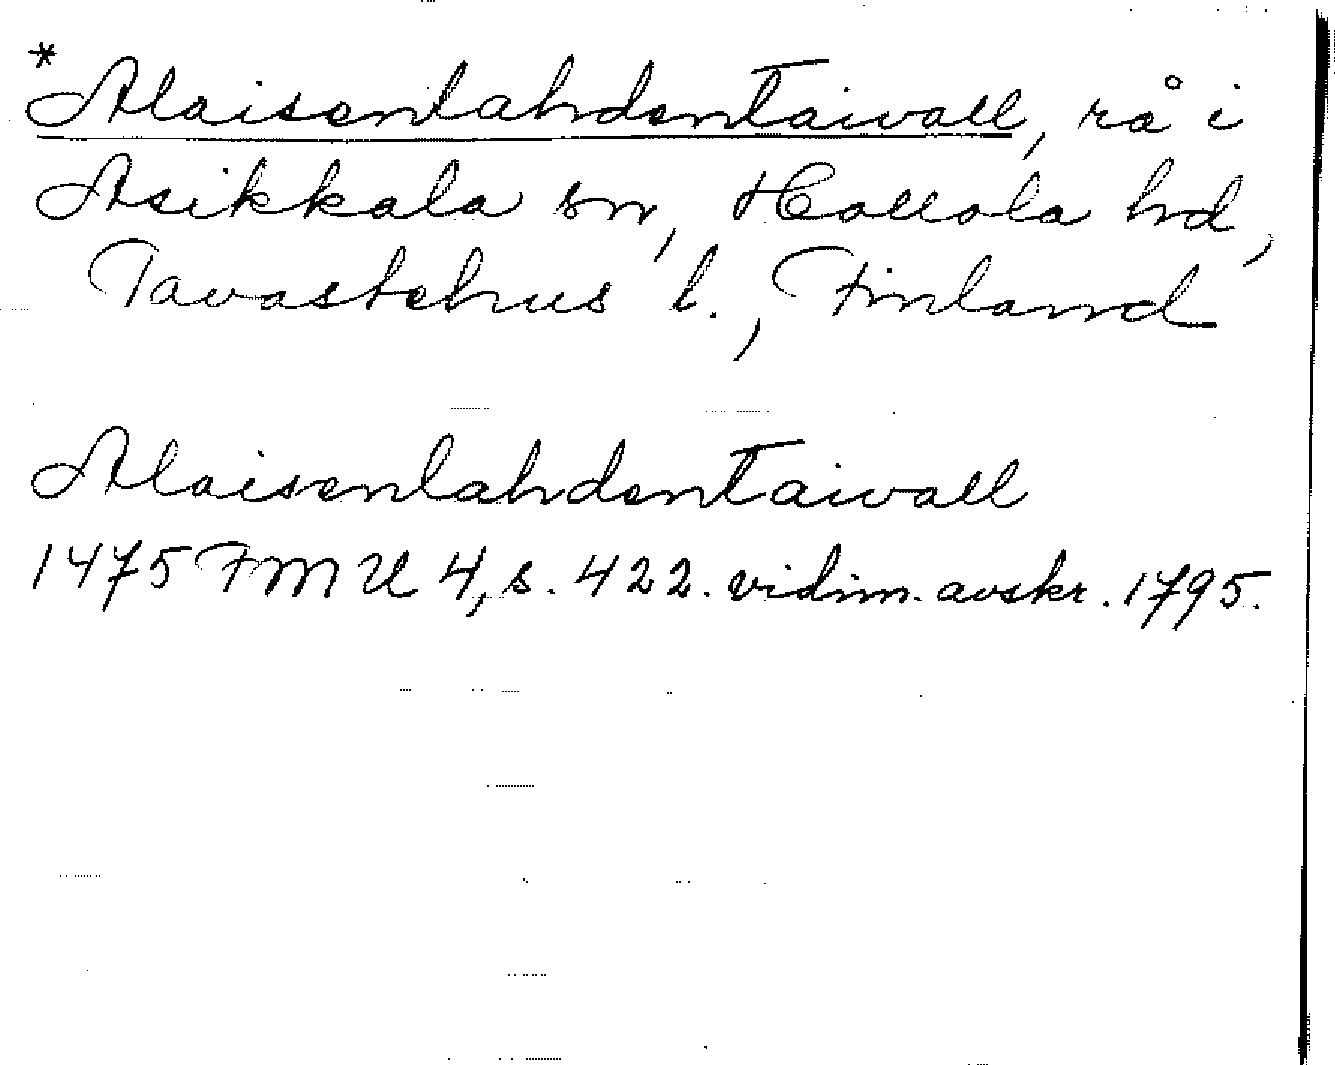 * Alaisenlahdentaivall, rå i
Asikkala sn, Hollola hd,
Tavastehus l., Finland
Alaisenlahdentaivall
1475 FMU 4, s. 422. vidim. avskr. 1795.